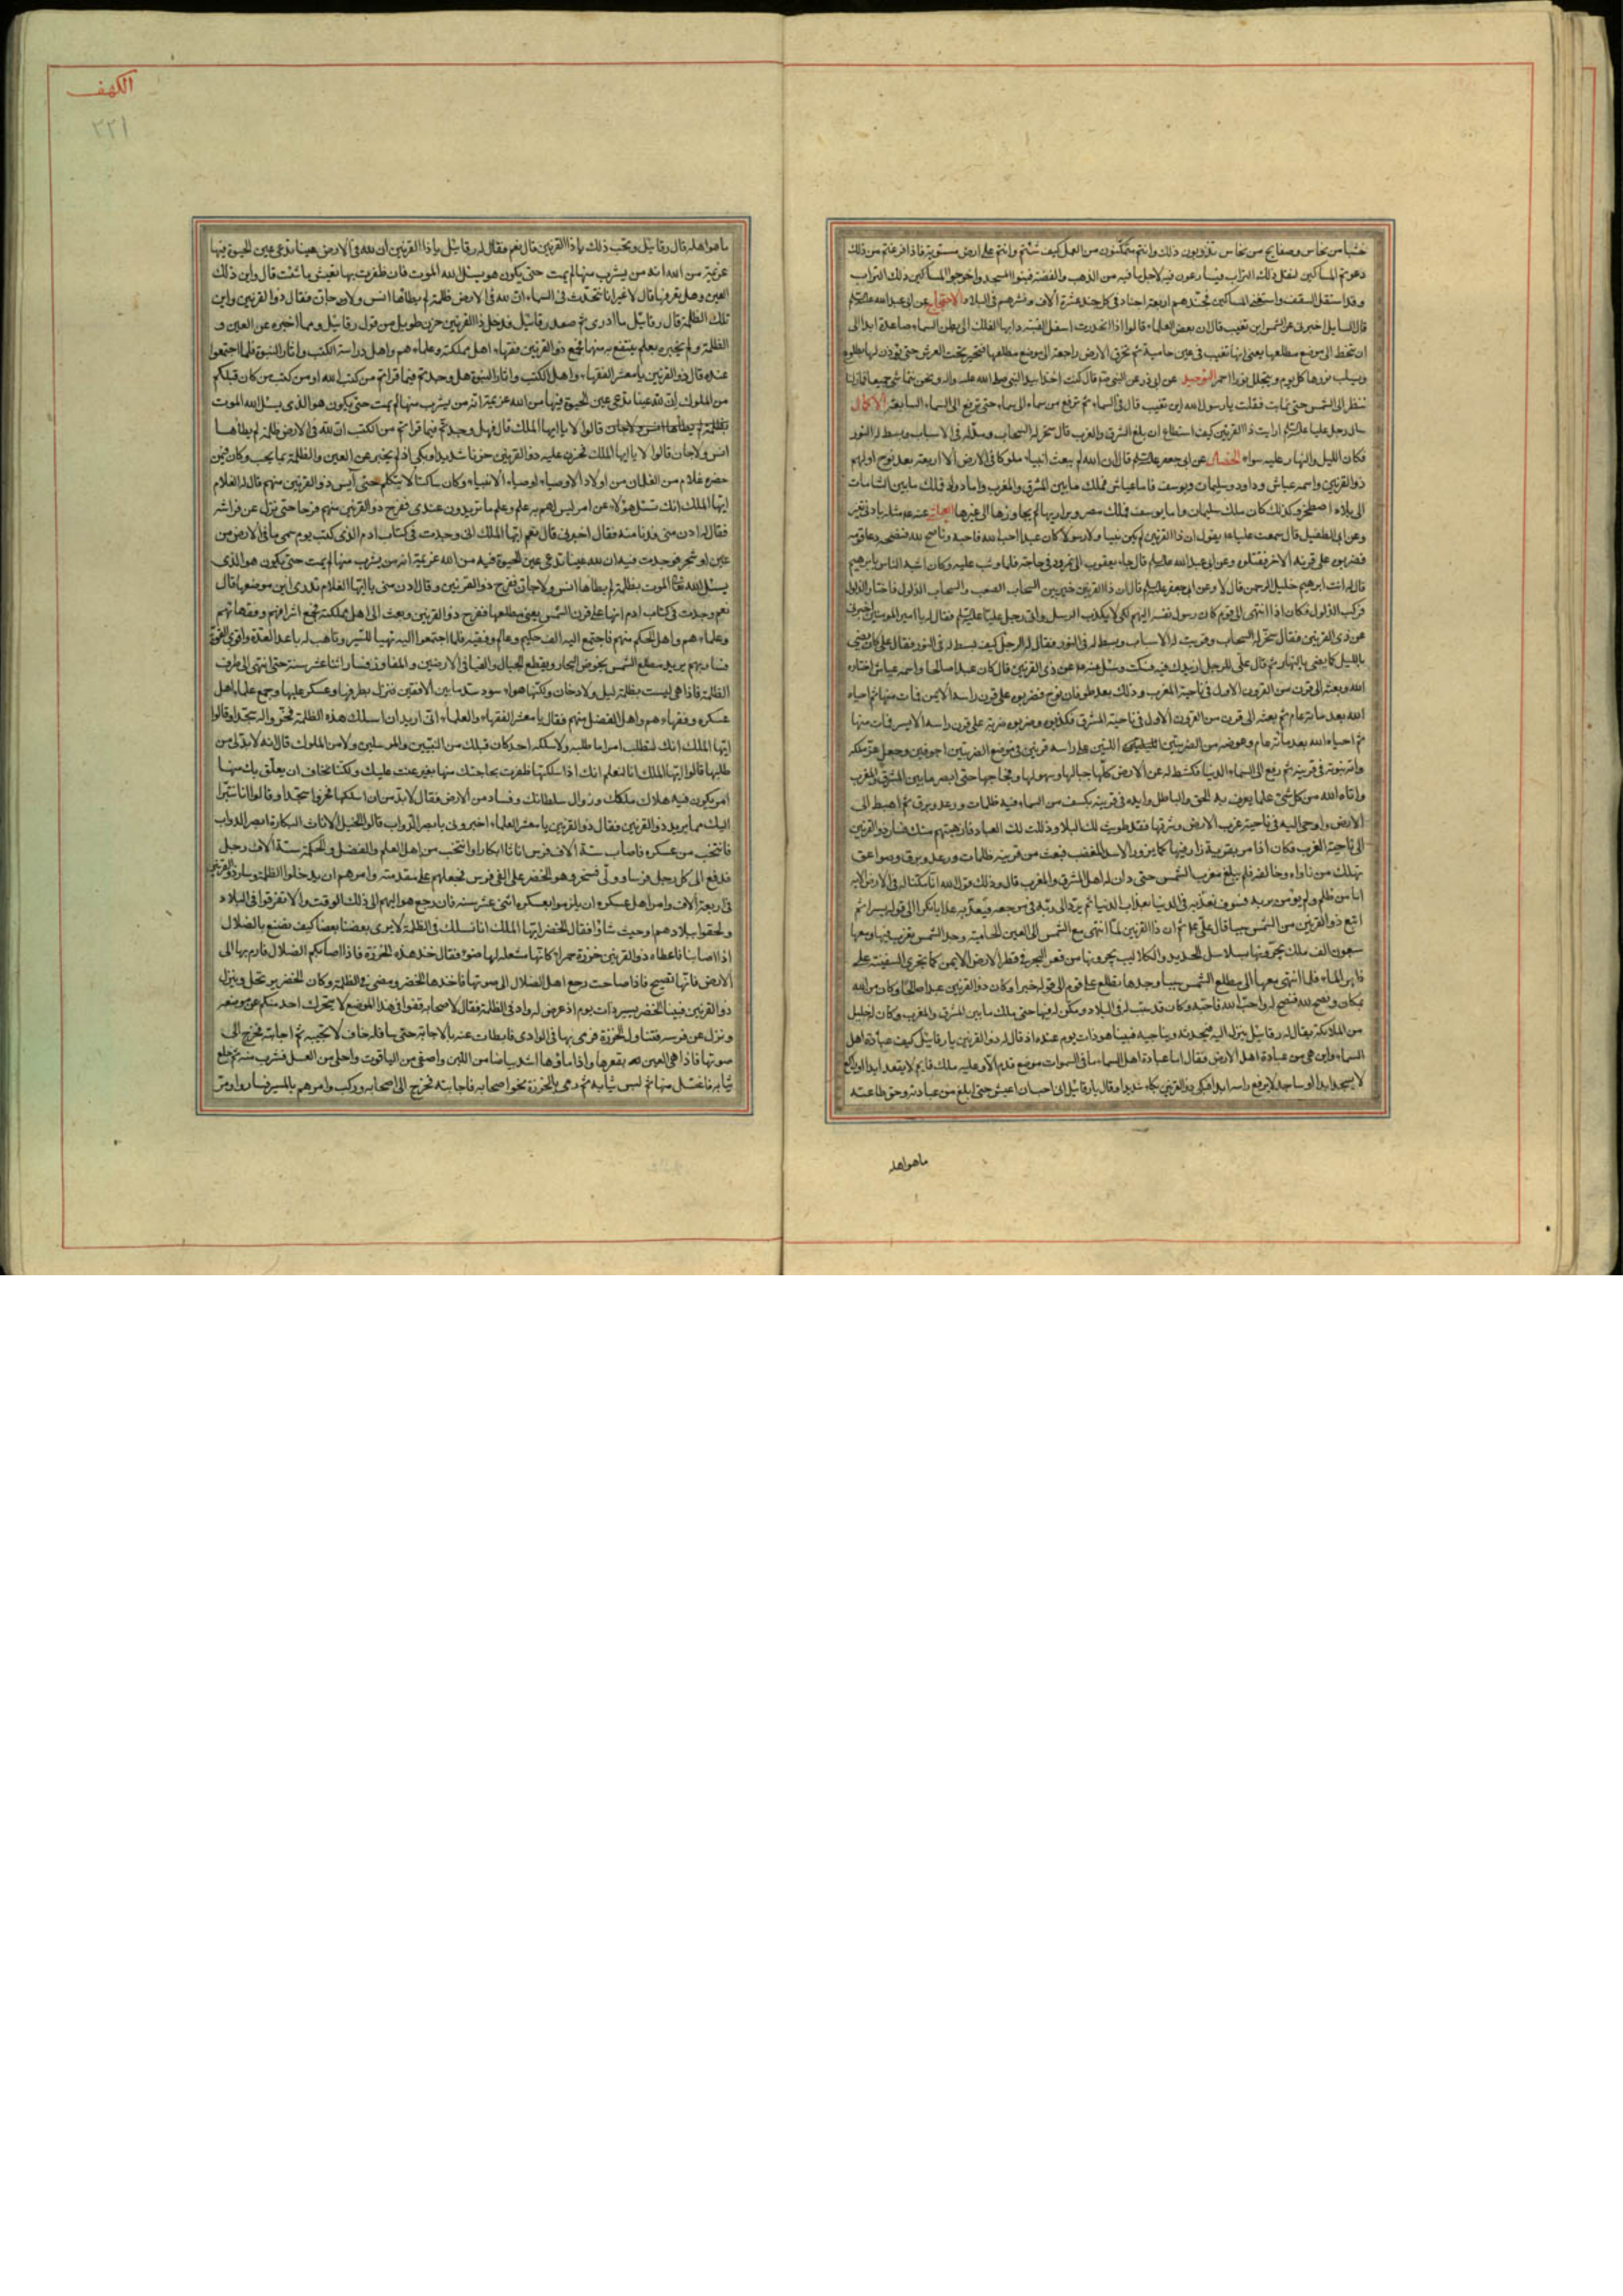 خشبا من نحاس وصفايح من نحاس تذوبون ذلك وانتم متمكنون من العمل كيف شئتم وانتم على ارض مستوية فاذا فرغتم من ذلك
دعوتم المساكين لنقل ذلك التراب فيسارعون فيه لاجل ما فيه من الذهب والفضة فبنوا المسجد واخرجوا المساكين ذلك التراب
وقد استقل السقف واستغنى المساكين فجندهم اربعة اجناد فى كل جند عشرة الاف ونشرهم فى البلاد الاحتجاج عن ابى عبد الله
قال السايل اخبرنى عن الشمس اين تغيب قال ان بعض العلماء قالوا اذا انحدرت اسفل القبة دار بها الفلك الى بطن السماء صاعدة ابدا الى
ان تنحط الى موضع مطلعها يعنى انها تغيب فى عين حامية ثم تخرق الارض راجعة الى موضع مطلعها فتخر تحت العرش حتى يؤذن لها بالطلوع
ويسلب نورها كل يوم ويتجلل نورا احمر التوحيد عن ابى ذر عن النبى قال كنت اخذا بيد النبى صلى الله عليه واله ونحن نتماشى جميعا فما زلنا
ننظر الى الشمس حتى غابت فقلت يا رسول الله اين تغيب قال فى السماء ثم ترفع من سماء الى سماء حتى ترفع الى السماء السابعة الاكمال
سال رجل عليا ارايت ذا القرنين كيف استطاع ان بلغ الشرق والغرب قال سخر له السحاب ومد له فى الاسباب وبسط له النور
فكان الليل والنهار عليه سواء الخصال عن ابى جعفر قال ان الله لم يبعث انبياء ملوكا فى الارض الا اربعة بعد نوح اولهم
ذو القرنين واسمه عياش وداود وسليمان ويوسف فاما عياش فملك ما بين المشرق والمغرب واما داود فملك ما بين الشامات
الى بلاد اصطخر وكذلك كان ملك سليمان واما يوسف فملك مصر وبراريها لم يجاوزها الى غيرها
وعن ابى الطفيل قال سمعت عليا يقول ان ذا القرنين لم يكن نبيا ولا رسولا كان عبدا احب الله فاحبه وناصح لله فنصحه دعا قومه
فضربوه على قرنه الاخر فقتلوه وعن ابى عبد الله قال جاء يعقوب الى نمرود فى حاجة فلما وثب عليه وكان اشبه الناس بابرهيم
قال له انت ابرهيم خليل الرحمن قال لا وعن ابى جعفر قال ان ذا القرنين خير بين السحاب الصعب والسحاب الذلول فاختار الذلول
فركب الذلول فكان اذا انتهى الى قوم كان رسول نفسه اليهم لكى لا يكذب الرسل واتى رجل عليا فقال له يا امير المومنين اخبرنى
عن ذى القرنين فقال سخر له السحاب وقربت له الاسباب وبسط له فى النور فقال له الرجل كيف بسط له فى النور فقال على كان يضئ
بالليل كما يضئ بالنهار ثم قال على للرجل ازيدك فيه فسكت وسئل عن ذى القرنين قال كان عبدا صالحا واسمه عياش اختاره
الله وبعثه الى قرن من القرون الاول فى ناحية المغرب وذلك بعد طوفان نوح فضربوه على قرن راسه الايمن فمات منها ثم احياه
الله بعد مائة عام ثم بعثه الى قرن من القرون الاول فى ناحية المشرق فكذبوه وضربوه ضربة على قرن راسه الايسر فمات منها
ثم احياه الله بعد مائة عام وعوضه من الضربتين اللتين على راسه قرنين فى موضع الضربتين اجوفين وجعل عز ملكه
واية نبوته فى قرنيه ثم رفع الى السماء الدنيا فكشط له عن الارض كلها جبالها وسهولها وفجاجها حتى ابصر ما بين المشرق والمغرب
واتاه الله من كل شئ علما يعرف به الحق والباطل وايده فى قرنيه بكسف من السماء فيه ظلمات ورعد وبرق ثم اهبط الى
الارض واوحى اليه فى ناحية غرب الارض وشرقها فقد طويت لك البلاد وذللت لك العباد فارهبتهم منك فسار ذو القرنين
الى ناحية المغرب فكان اذا مر بقرية زار فيها كما يزور الاسد المغضب فبعث من قرنيه ظلمات ورعد وبرق وصواعق
تهلك من ناواه وخالفه فلم يبلغ مغرب الشمس حتى دان له اهل المشرق والمغرب قال وذلك قول الله انا مكنا له فى الارض
اما من ظلم ولم يؤمن بربه فسوف نعذبه فى الدنيا بعذاب الدنيا ثم يرد الى ربه فى مرجعه فيعذبه عذابا نكرا الى قوله يسرا ثم
اتبع ذو القرنين من الشمس سببا قال على ان ذا القرنين لما انتهى مع الشمس الى العين الحامية وجد الشمس تغرب فيها ومعها
سبعون الف ملك يجرونها بسلاسل الحديد والكلاليب يجرونها من قعر البحر فى قطر الارض الايمن كما يجرى السفينة على
ظهر الماء فلما انتهى معها الى مطلع الشمس سببا وجدها تطلع على قوم الى قوله خبرا وكان ذو القرنين عبدا صالحا وكان من الله
بمكان ونصح لله فنصح له واحب الله فاحبه وكان قد سبب له فى البلاد ومكن له فيها حتى ملك ما بين المشرق والمغرب وكان له خليل
من الملائكة يقال له رقائيل ينزل اليه فيحدثه ويناجيه فبينا هو ذات يوم عنده اذ قال له ذو القرنين يا رقائيل كيف عبادة اهل
السماء واين هى من عبادة اهل الارض فقال اما عبادة اهل السماء ما فى السموات موضع قدم الا وعليه ملك قايم لا يقعد ابدا او راكع
لا يسجد ابدا او ساجد لا يرفع راسه ابدا فبكى ذو القرنين بكاء شديدا وقال يا رقائيل انى احب ان اعيش حتى ابلغ من عبادته وحق طاعته
ماهو اهله
الكهف
٢٢١
ما هو اهله قال رقائيل وتحب ذلك يا ذا القرنين قال نعم فقال له رقائيل يا ذا القرنين ان لله فى الارض عينا تدعى عين الحيوة فيها
عزيمة من الله انه من يشرب منها لم يمت حتى يكون هو يسئل الله الموت فان ظفرت بها تعيش ما شئت قال واين ذلك
العين وهل تعرفها قال لا غير انا نتحدث فى السماء ان لله فى الارض ظلمة لم يطاها انس ولا جان فقال ذو القرنين واين
تلك الظلمة قال رقائيل ما ادرى ثم صعد رقائيل فدخل ذا القرنين حزن طويل من قول رقائيل ومما اخبره عن العين و
الظلمة ولم يخبره بعلم ينتفع به منهما فجمع ذو القرنين فقهاء اهل مملكته وعلماءهم واهل دراسة الكتب واثار النبوة فلما اجتمعوا
عنده قال ذو القرنين يا معشر الفقهاء واهل الكتب واثار النبوة هل وجدتم فيما قراتم من كتب الله او من كتب من كان قبلكم
من الملوك ان لله عينا تدعى عين الحيوة فيها من الله عزيمة انه من يشرب منها لم يمت حتى يكون هو الذى يسئل الله الموت
بظلمة لم يطاها انس ولا جان قالوا لا يا ايها الملك قال فهل وجدتم فيما قراتم من الكتب ان لله فى الارض ظلمة لم يطاها
انس ولا جان قالوا لا يا ايها الملك فحزن عليه ذو القرنين حزنا شديدا وبكى اذ لم يخبر عن العين والظلمة بما يحب وكان فيمن
حضره غلام من الغلمان من اولاد الاوصياء اوصياء الانبياء وكان ساكتا لا يتكلم حتى ايس ذو القرنين منهم قال له الغلام
ايها الملك انك تسئل هؤلاء عن امر ليس لهم به علم وعلم ما تريدون عندى ففرح ذو القرنين منهم فرحا حتى نزل عن فراشه
فقال له ادن منى فدنا منه فقال اخبرنى قال نعم ايها الملك انى وجدت فى كتاب ادم الذى كتب يوم سمى ما فى الارض من
عين او شجر فوجدت فيه ان لله عينا تدعى عين الحيوة فيه من الله عزيمة انه من يشرب منها لم يمت حتى يكون هو الذى
يسئل الله الموت بظلمة لم يطاها انس ولا جان ففرح ذو القرنين وقال ادن منى يا ايها الغلام تدرى اين موضعها قال
نعم وجدت فى كتاب ادم انها على قرن الشمس يعنى مطلعها ففرح ذو القرنين وبعث الى اهل مملكته فجمع اشرافهم وفقهائهم
وعلماءهم واهل الحكم منهم فاجتمع اليه الف حكيم وعالم وفقيه فلما اجتمعوا اليه تهيا للسير وتاهب له باعد العدة واقوى القوة
فسار بهم يريد مطلع الشمس يخوض البحار ويقطع الجبال والفيافى الارضين والمفاوز فسار اثنا عشر سنة حتى انتهى الى طرف
الظلمة فاذا هى ليست بظلمة ليل ولا دخان ولكنها هواء سود سد ما بين الافقين فنزل بطرفها وعسكر عليها وجمع علماء اهل
عسكره وفقهاءهم واهل الفضل منهم فقال يا معشر الفقهاء والعلماء انى اريد ان اسلك هذه الظلمة فخروا له سجدا وقالوا
ايها الملك انك لتطلب امرا ما طلبه ولا سلكه احد كان قبلك من النبيين والمرسلين ولا من الملوك قال انه لا بد لى من
طلبها قالوا ايها الملك انا لنعلم انك اذا سلكتها ظفرت بحاجتك منها بغير عنت عليك ولكنا نخاف ان يعلق بك منها
امر يكون فيه هلاك ملكك وزوال سلطانك وفساد من الارض فقال لا بد من ان اسلكها فخروا سجدا وقالوا انا نتبرا
اليك مما يريد ذو القرنين فقال ذو القرنين يا معشر العلماء اخبرونى بابصر الدواب قالوا الخيل الاناث البكارة ابصر الدواب
فانتخب من عسكره فاصاب ستة الاف فرس اناثا ابكارا وانتخب من اهل العلم والفضل والحكمة ستة الاف رجل
فدفع الى كل رجل فرسا وولى الخضر على الفى فرس فجعلهم على مقدمته وامرهم ان يدخلوا الظلمة وسار ذو القرنين
فى اربعة الاف وامر اهل عسكره ان يلزموا معسكره اثنى عشر سنة فان رجع هو اليهم الى ذلك الوقت والا تفرقوا فى البلاد
ولحقوا ببلادهم او حيث شاؤا فقال الخضر ايها الملك انا نسلك فى الظلمة لا يرى بعضنا بعضا كيف نصنع بالضلال
اذا اصابنا فاعطاه ذو القرنين خرزة حمراء كانها مشعلة لها ضوء فقال خذ هذه الخرزة فاذا اصابكم الضلال فارم بها الى
الارض فانها تصيح فاذا صاحت رجع اهل الضلال الى صوتها فاخذها الخضر ومضى فى الظلمة وكان الخضر يرتحل وينزل
ذو القرنين فبينا الخضر يسير ذات يوم اذ عرض له واد فى الظلمة فقال لاصحابه قفوا فى هذا الموضع لا يتحرك احد منكم عن موضعه
ونزل عن فرسه فتناول الخرزة فرمى بها فى الوادى فابطات عنه بالاجابة حتى خاف لا تجيبه ثم اجابته فخرج الى
صوتها فاذا هى العين بقعرها واذا ماؤها اشد بياضا من اللبن واصفى من الياقوت واحلى من العسل فشرب منه ثم خلع
ثيابه فاغتسل منها ثم لبس ثيابه ثم رمى بالخرزة نحو اصحابه فاجابته فخرج الى اصحابه وركب وامرهم بالمسير فساروا ومر